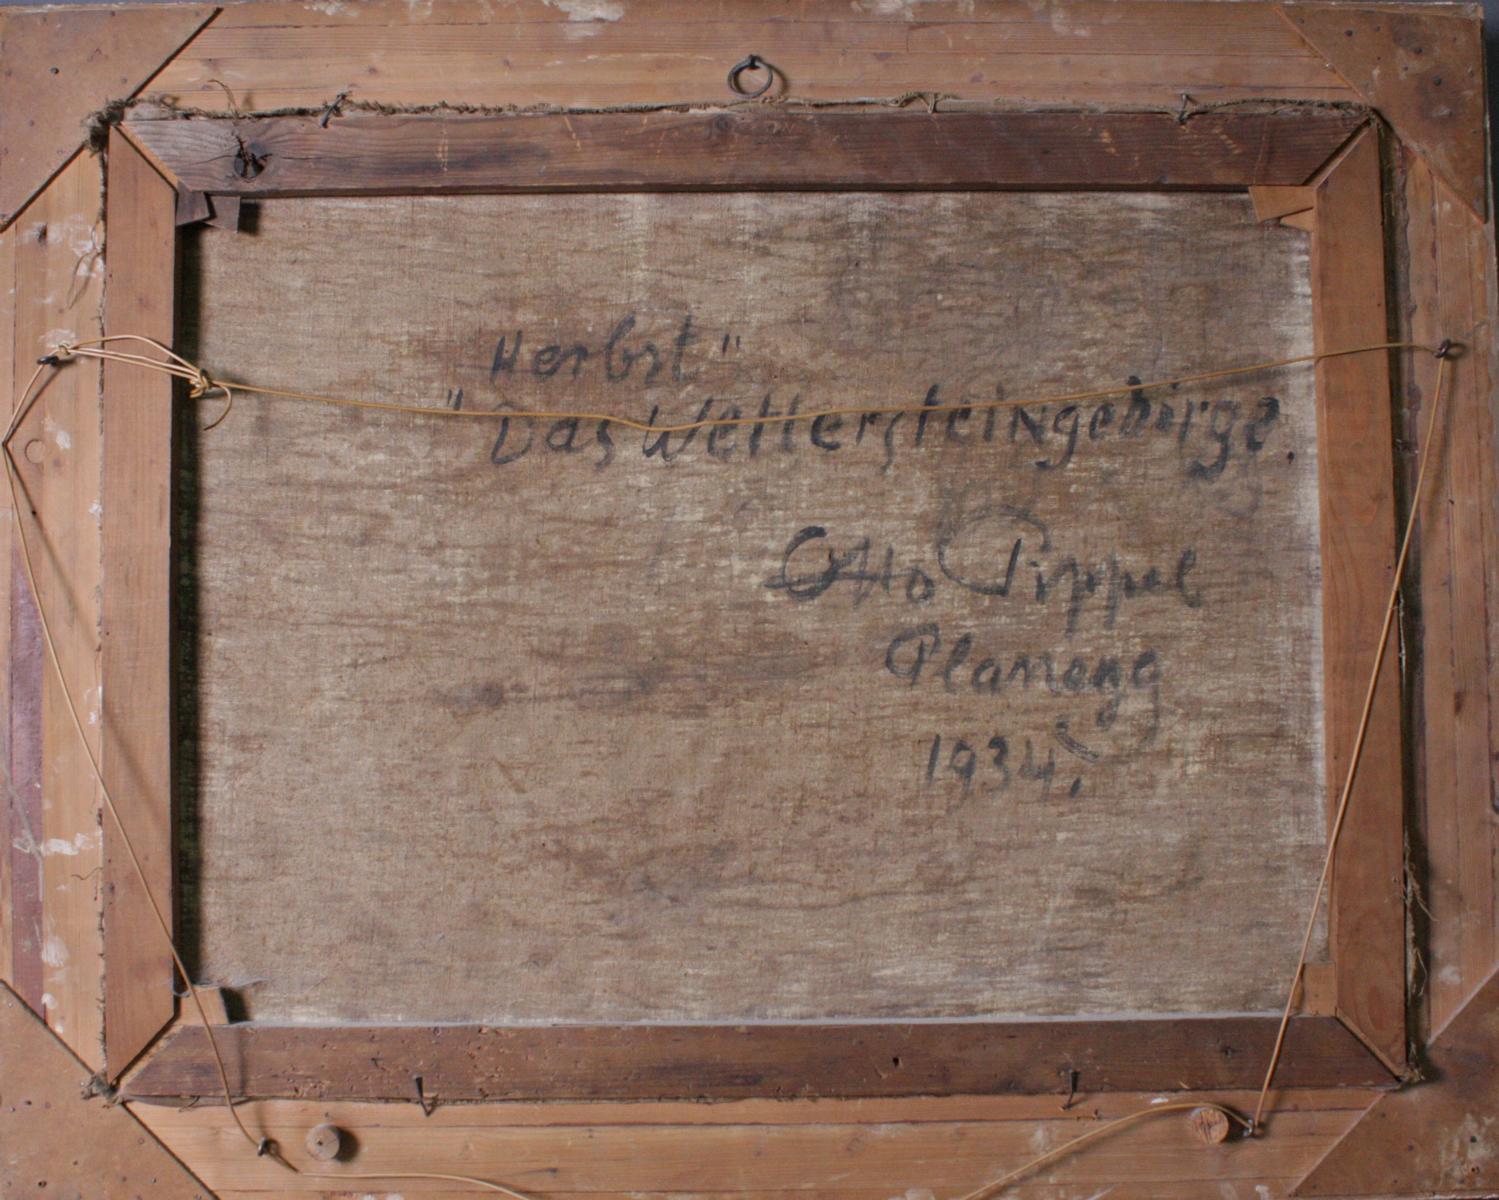 Herbst"
"Das Wettersteingebirge.
Otto Pippel
Planegg
1934.